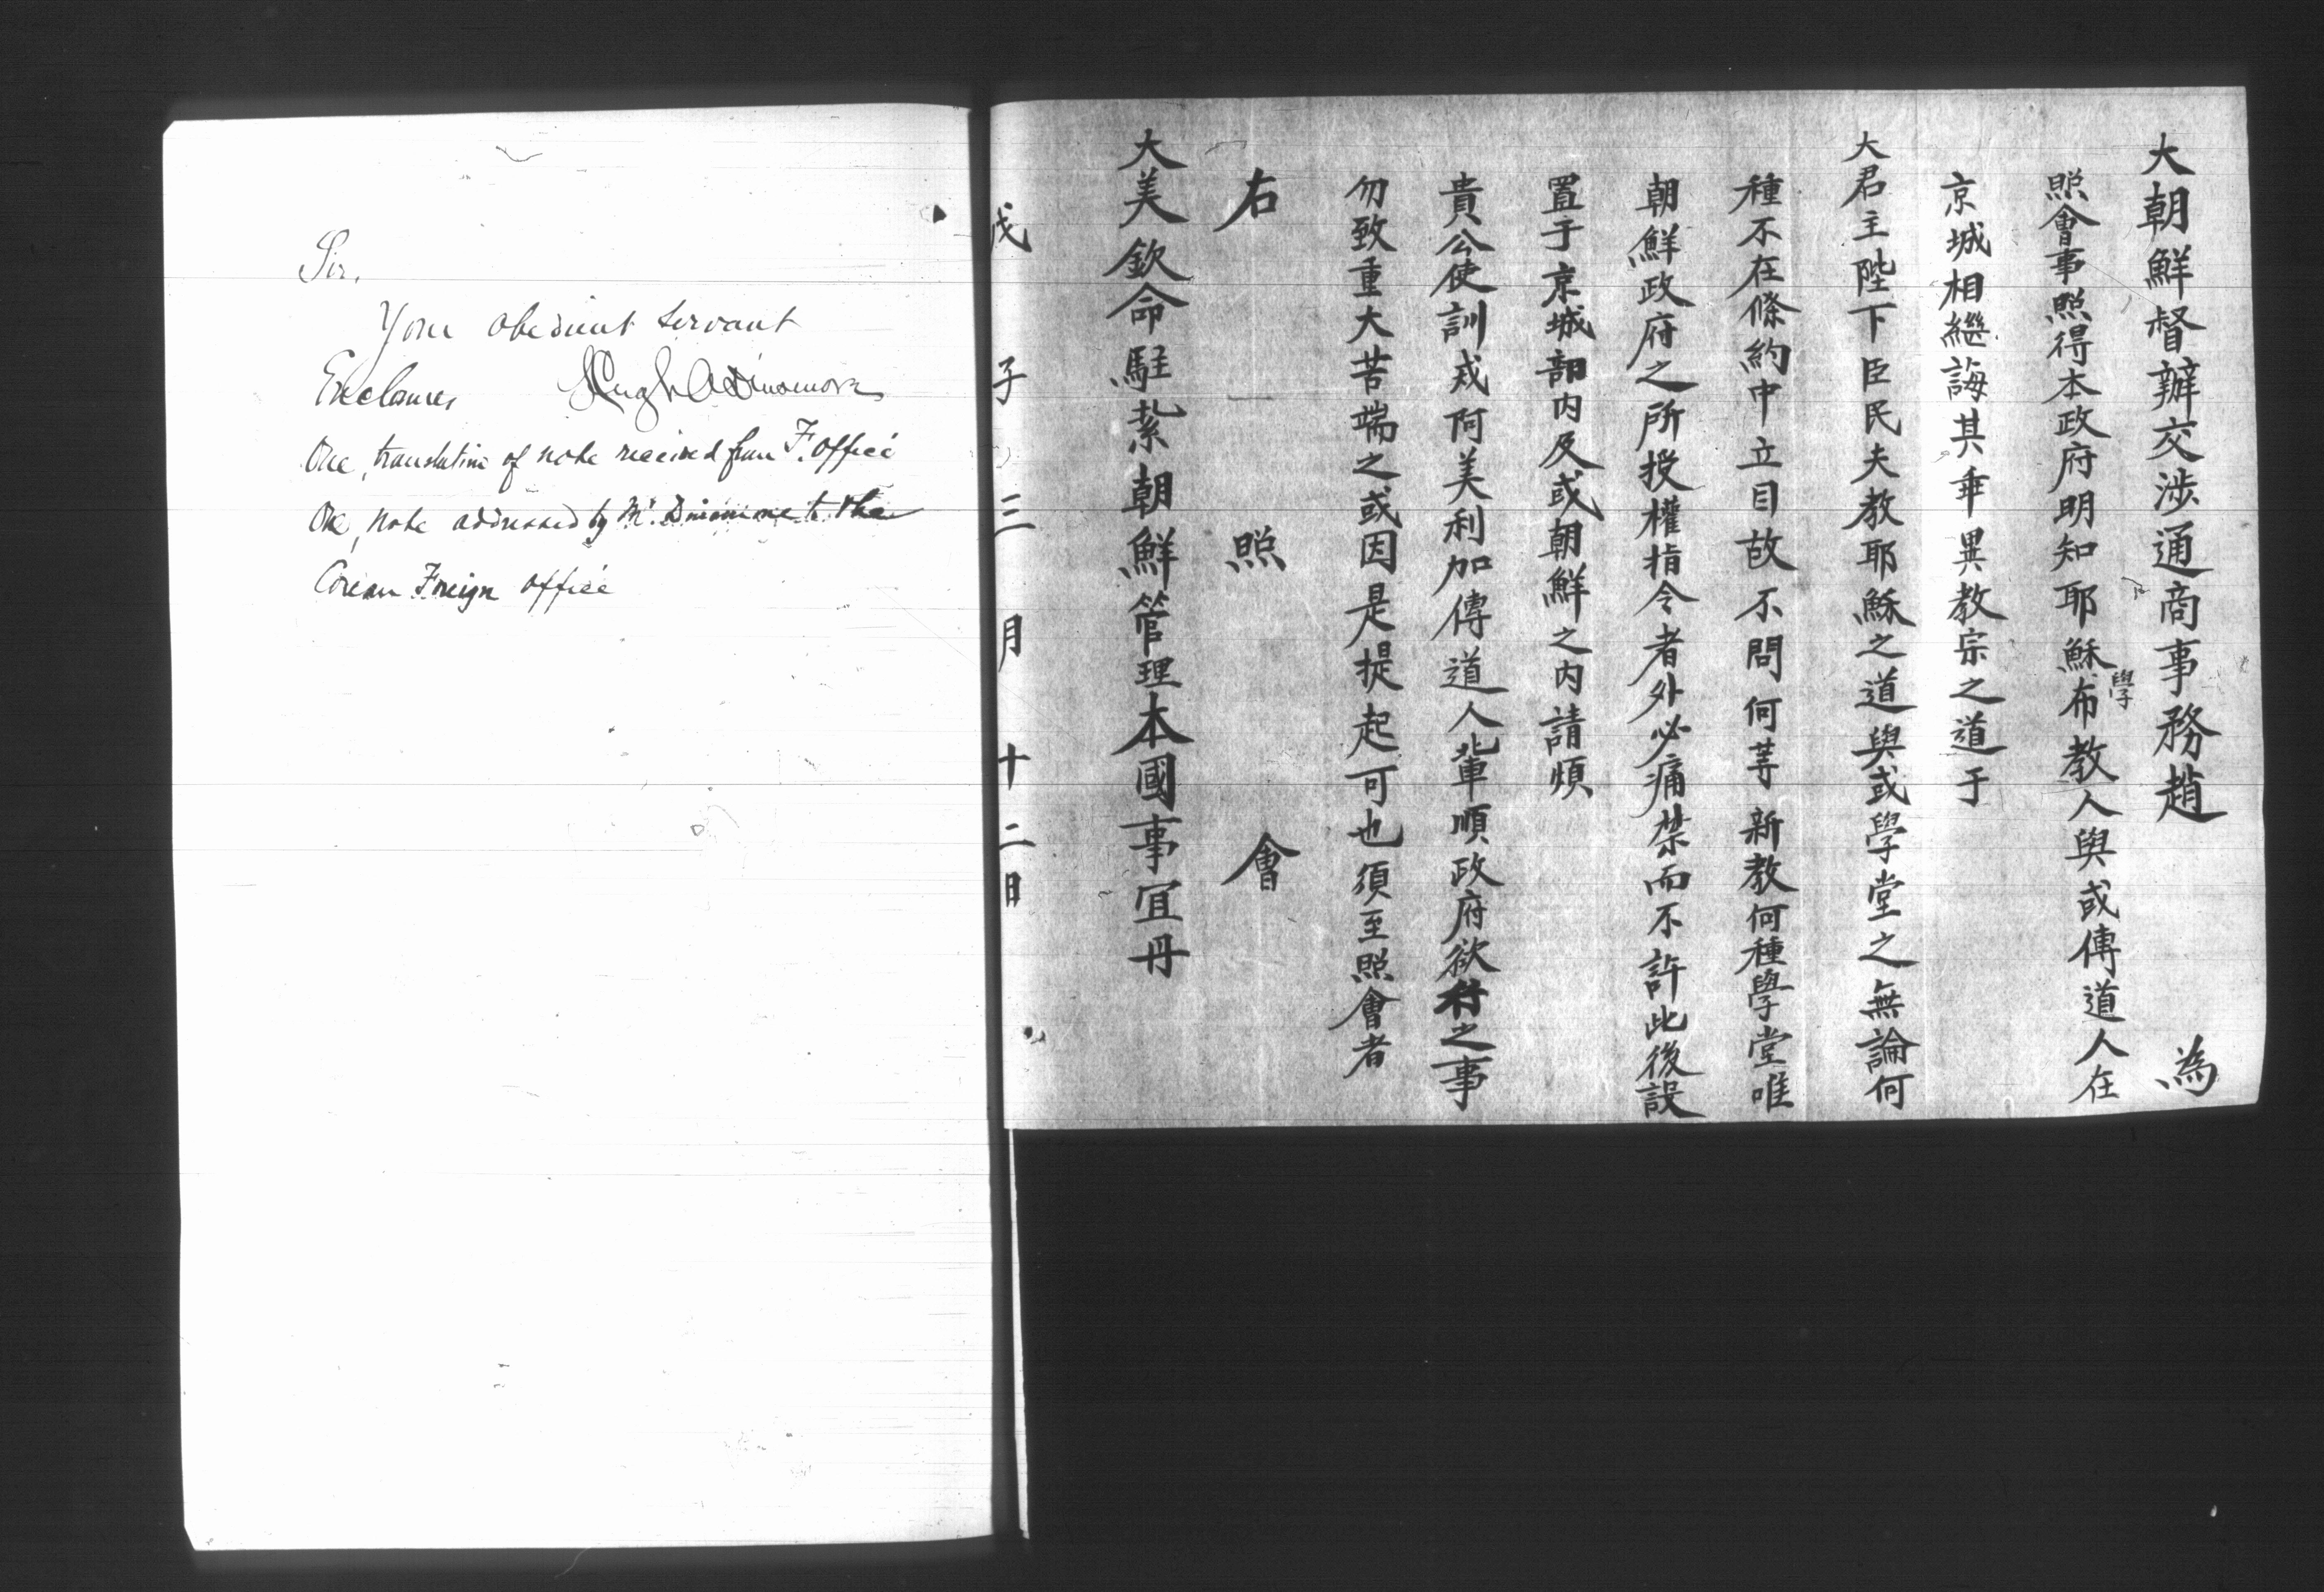 Sir,
Your obedient servant
Hugh A Dinsmore
Enclosures
One, translation of note received from F. Office
One, note addressed by Mr. Dinsmore to the
Corean Foreign Office
大朝鮮督辦交涉通商事務趙 為
照會事照得本政府明知耶穌學布教人與或傳道人在
京城相繼誨其乖異教宗之道于
大君主陛下臣民夫教耶穌之道與或學堂之無論何
種不在條約中立目故不問何等新教何種學堂唯
朝鮮政府之所授權指令者外必痛禁而不許此後設
置于京城部內及或朝鮮之內請煩
貴公使訓戒阿美利加傳道人輩順政府欲行之事
勿致重大苦端之或因是提起可也須至照會者
右照會
大美欽命駐紮朝鮮管理本國事宜丹
戊子三月十二日